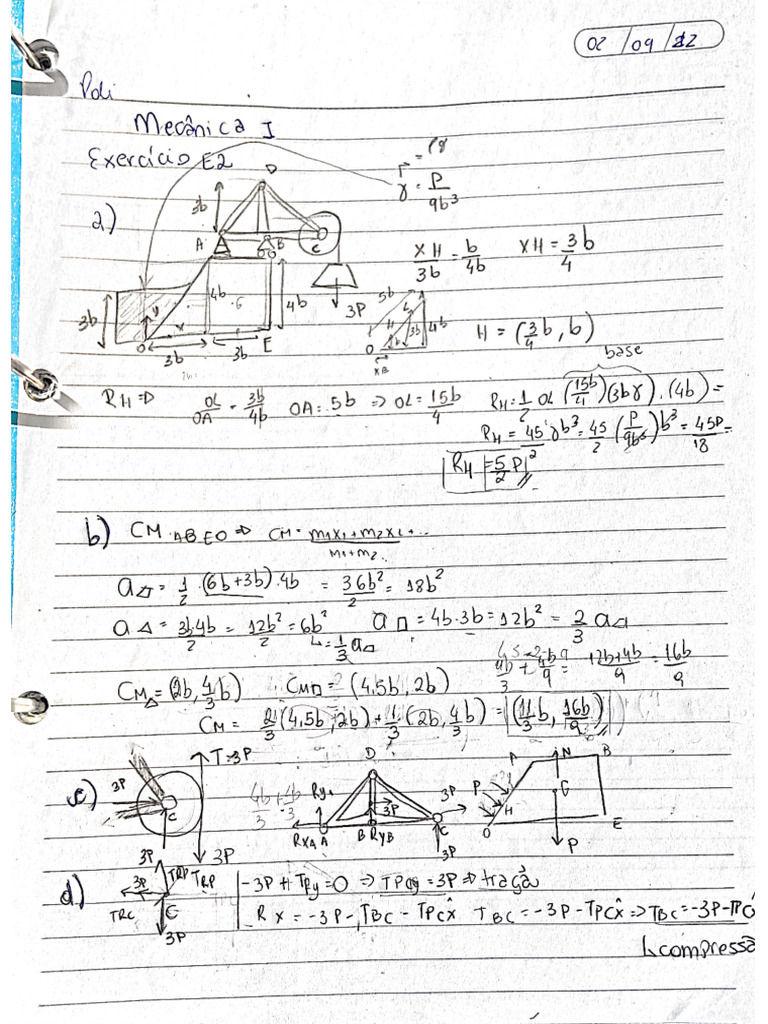 02 / 09 / 22
Poli
Mecânica I
Exercício E2
γ = P/9b³
a)
D
3b
A
B
C
3P
3b
y
x
O
4b
G
4b
3b
3b
E
XH/3b = b/4b XH = 3b/4
5b
4b
3b
H
O
XH
H = (3/4 b, b)
base
RH ⇒ OL/OA = 3b/4b OA = 5b ⇒ OL = 15b/4 RH = 1/2 OL (15b/4)(3bγ).(4b) =
RH = 45/2 γb³ = 45/2 (P/9b³) b³ = 45P/18 =
RH = 5/2 P
b) CM ABEO ⇒ CM = m1x1 + m2x2 + .../m1 + m2
a = 1/2 . (6b + 3b) . 4b = 36b²/2 = 18b²
a△ = 3b4b/2 = 12b²/2 = 6b² a□ = 4b.3b = 12b² = 2/3 a
↳ = 1/3 a
12b+4b/9 = 16b/9
CM△ = (2b, 4/3 b) CM□ = (4,5b, 2b)
CM = 2/3 (4,5b, 2b) + 1/3 (2b, 4/3 b) = (11/3 b, 16b/9)
c)
3P
C
T = 3P
3P
3P
4b/3 + 4b/3
D
RyA
RxA A
B RyB
3P
3P
C
3P
A
N
B
P
G
H
O
P
E
d)
3P
TRP
TRP
TRC
C
3P
-3P + TRy = 0 ⇒ TPCy = 3P ⇒ tração
RX = -3P - TBC - TPCx̂ TBC = -3P - TPCx̂ ⇒ TBC = -3P - TPC
↳ compressã